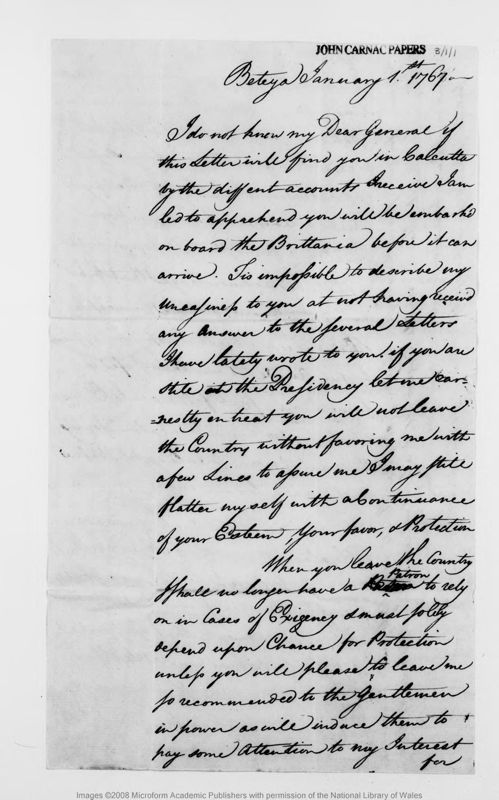 JOHN CARNAC PAPERS 3/1/1
Beteya January 1.st 1767
I do not know my Dear General if
this Letter will find you in Calcutta
by the diffent accounts I receive I am
led to apprehend you will be embarkd
on board the Brittania before it can
arrive. Tis impossible to describe my
uneasiness to you at not having receivd
any Answer to the several Letters
I have lately wrote to you. if you are
still at the Presidency let me ear=
=nestly entreat you will not leave
the Country without favoring me with
a few Lines to assure me I may still
flatter my self with a Continuance
of your Esteem, Your favor, & Protection
When you leave the Country
I shall no longer have a Patron to rely
on in Cases of Exigency & must solely
depend upon Chance for Protection
unless you will please to leave me
so recommended to the Gentlemen
in power as will induce them to
pay some Attention to my Interest
for
Images ©2008 Microform Academic Publishers with permission of the National Library of Wales